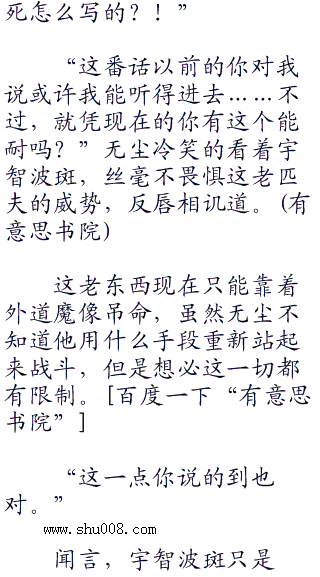 死怎么写的？！”
“这番话以前的你对我
说或许我能听得进去……不
过，就凭现在的你有这个能
耐吗？”无尘冷笑的看着宇
智波斑，丝毫不畏惧这老匹
夫的威势，反唇相讥道。(有
意思书院)
这老东西现在只能靠着
外道魔像吊命，虽然无尘不
知道他用什么手段重新站起
来战斗，但是想必这一切都
有限制。[百度一下“有意思
书院”]
“这一点你说的到也
对。”
www.shu008.com
闻言，宇智波斑只是